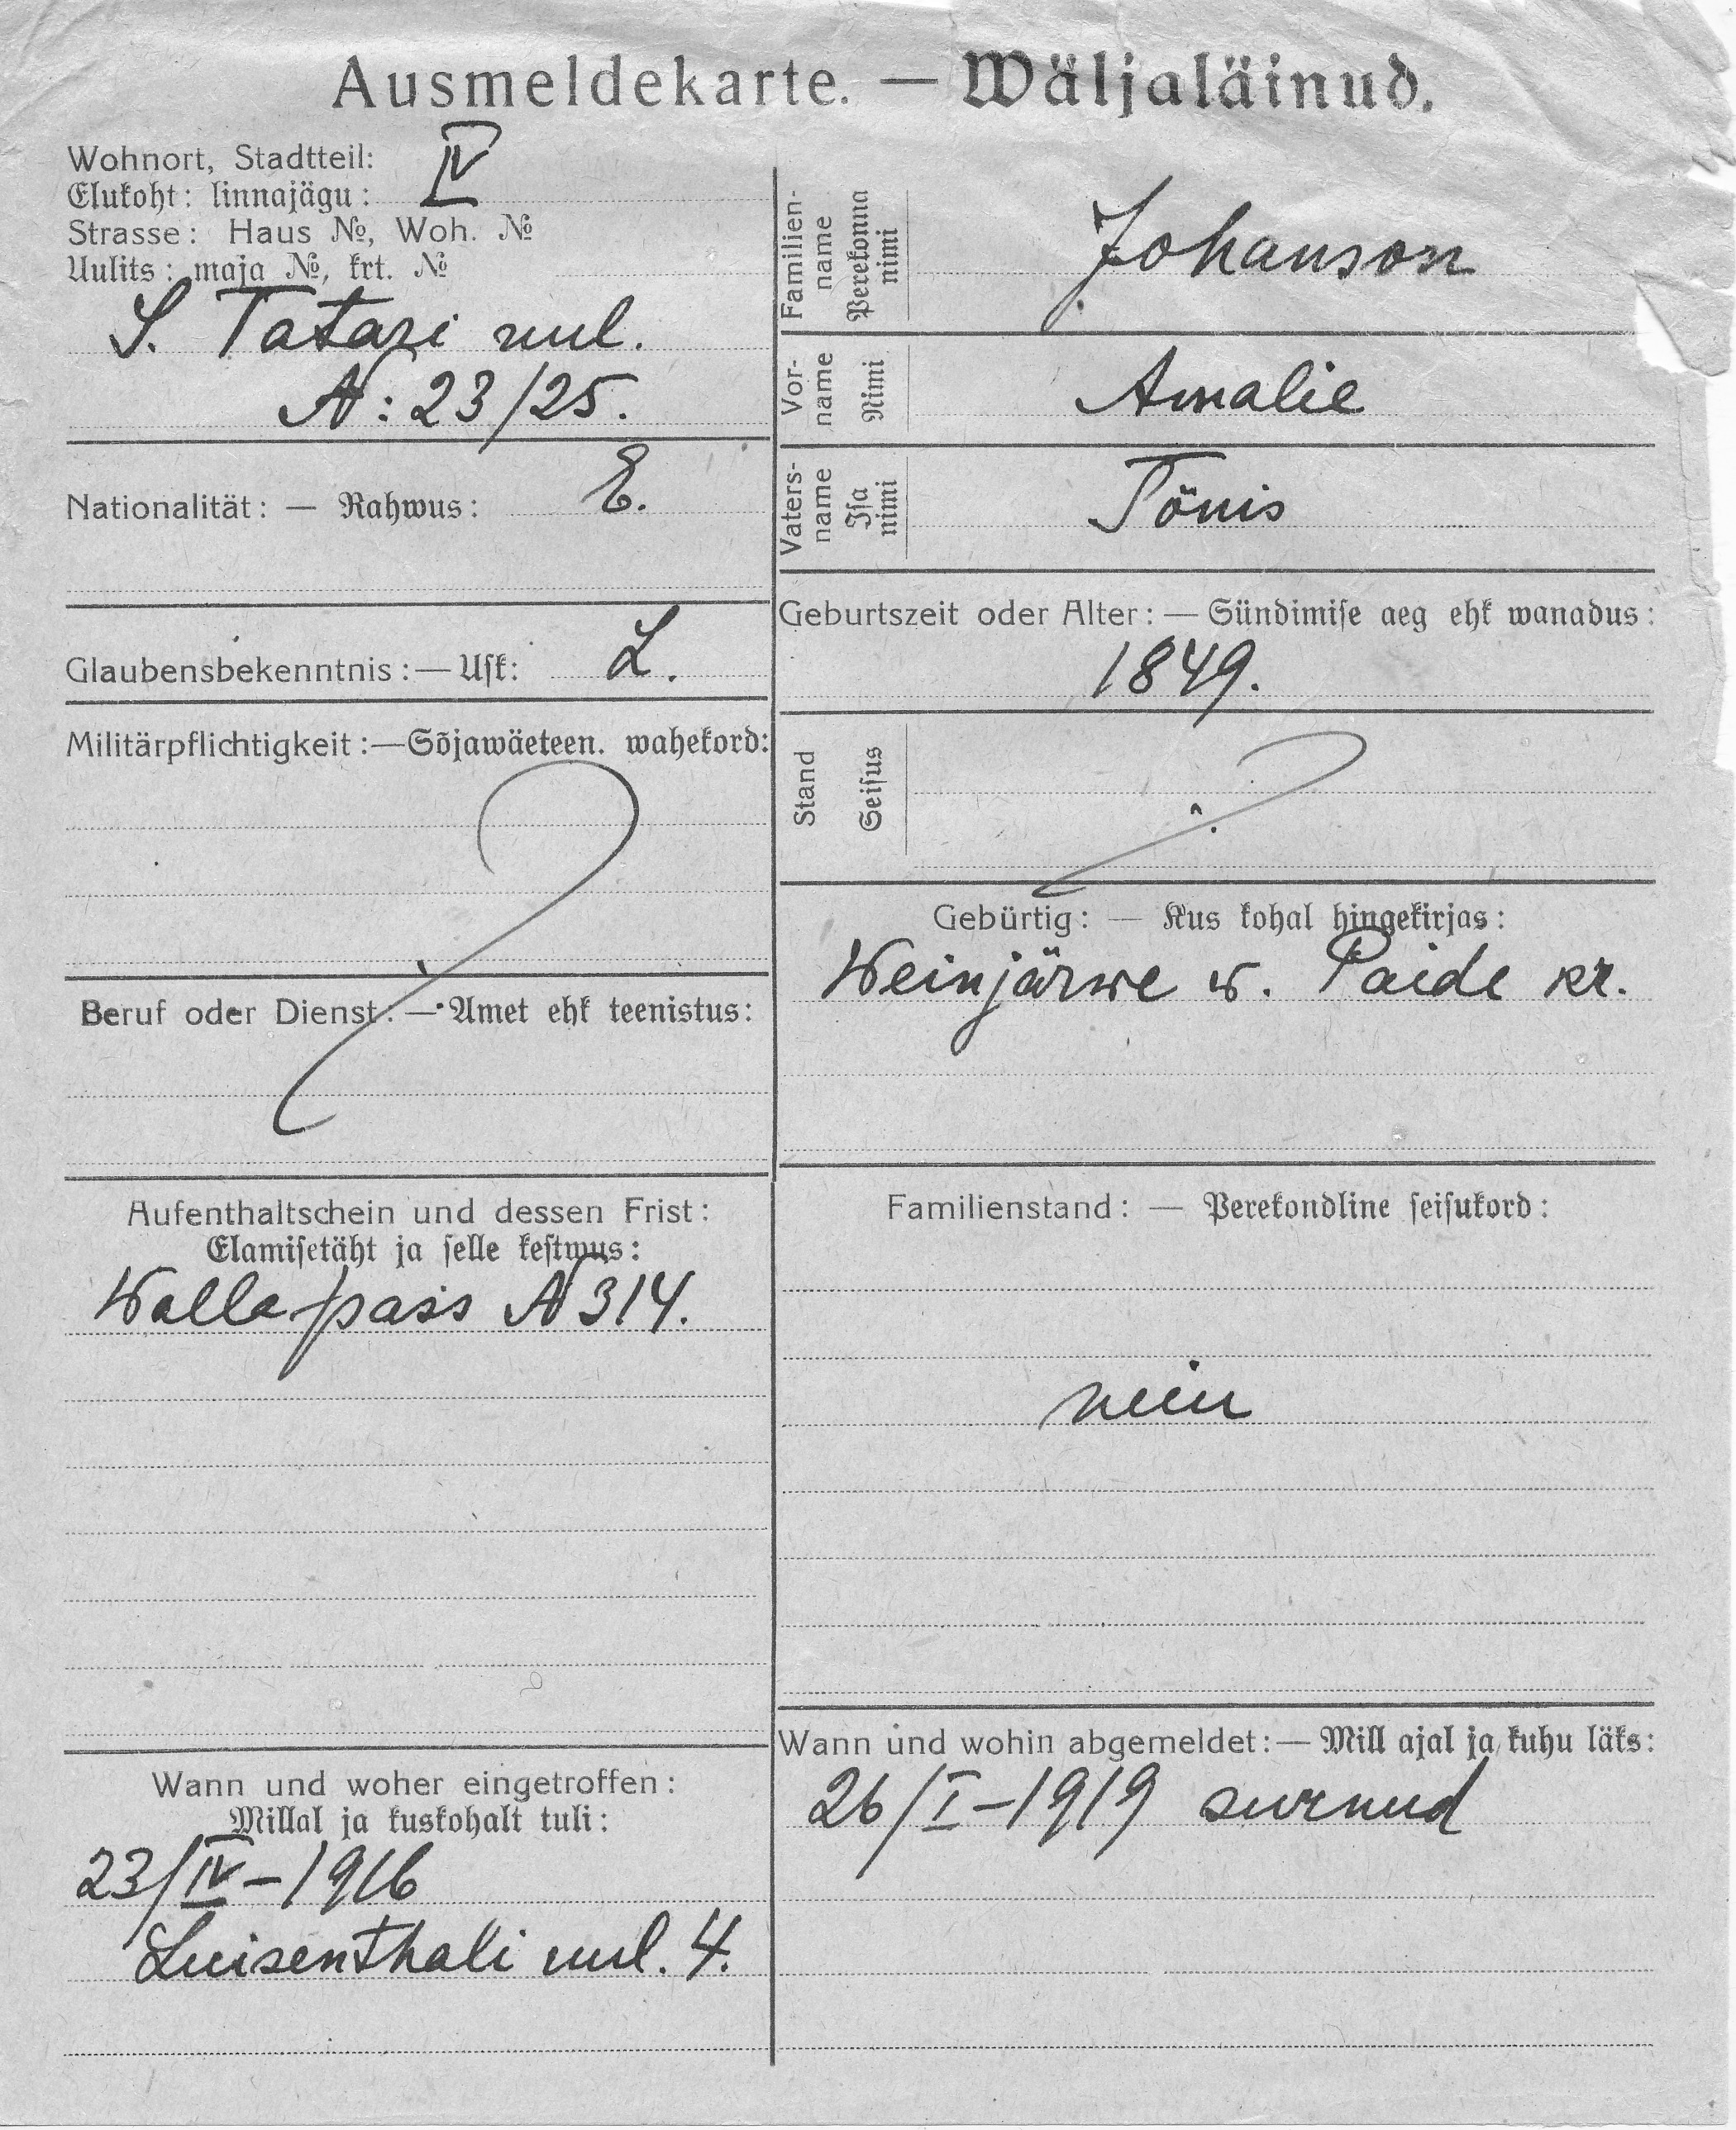 Ausmeldekarte. — Wäljaläinud.
Wohnort, Stadtteil: IV
Elukoht: linnajägu:
Strasse: Haus №, Woh. №
Uulits: maja №, krt. №
S. Tatari uul.
N: 23/25.
Nationalität: — Rahwus: E.
Glaubensbekenntnis:—Usk: L.
Militärpflichtigkeit:—Sõjawäeteen. wahekord:
Beruf oder Dienst: — Amet ehk teenistus:
Aufenthaltschein und dessen Frist:
Elamisetäht ja selle kestwus:
Walla pass N 314.
Wann und woher eingetroffen:
Millal ja kuskohalt tuli:
23/IV–1916
Luisenthali uul. 4.
Familien-
name
Perekonna
nimi
Johanson
Vor-
name
Nimi
Amalie
Vaters-
name
Isa
nimi
Tõnis
Geburtszeit oder Alter: — Sündimise aeg ehk wanadus:
1849.
Stand
Seisus
Gebürtig: — Kus kohal hingekirjas:
Weinjärwe w. Paide kr.
Familienstand: — Perekondline seisukord:
nein
Wann und wohin abgemeldet:— Mill ajal ja kuhu läks:
26/I–1919 surnud